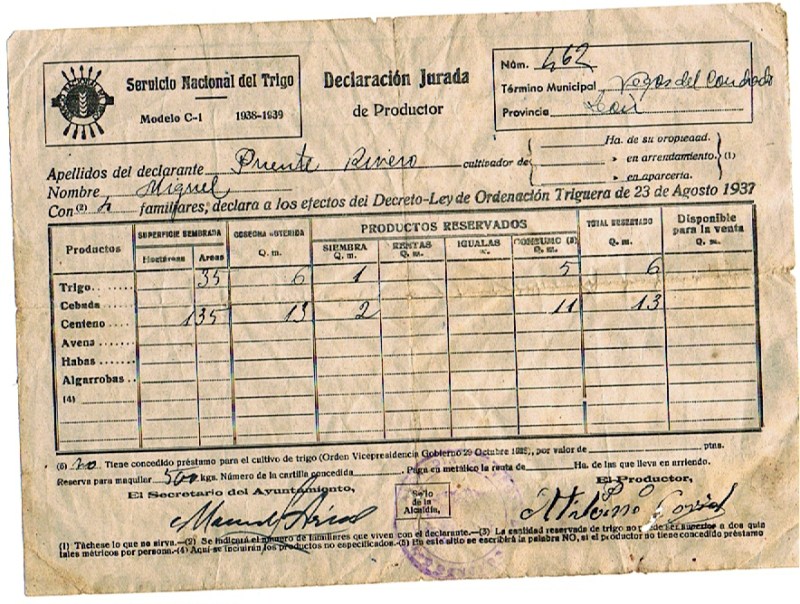 Servicio Nacional del Trigo
Modelo C-1 1938-1939
Declaración Jurada
de Productor
Núm. 462
Término Municipal Vegas del Condado
Provincia León
Apellidos del declarante Puente Rivero cultivador de
Ha. de su propiedad.
» en arrendamiento. (1)
» en aparcería.
Nombre Miguel
Con (2) 4 familiares, declara a los efectos del Decreto-Ley de Ordenación Triguera de 23 de Agosto 1937
Productos SUPERFICIE SEMBRADA COSECHA OBTENIDA PRODUCTOS RESERVADOS TOTAL RESERVADO Disponible para la venta
Hectáreas Areas Q. m. SIEMBRA Q. m. RENTAS Q. m. IGUALAS CONSUMO (3) Q. m. Q. m. Q. m.
Trigo 35 6 1 5 6
Cebada
Centeno 1 35 13 2 11 13
Avena
Habas
Algarrobas
(4)
(5) no Tiene concedido préstamo para el cultivo de trigo (Orden Vicepresidencia Gobierno 29 Octubre 1938), por valor de ptas.
Reserva para maquiler 500 kgs. Número de la cartilla concedida . Paga en metálico la renta de Ha. de las que lleva en arriendo.
El Secretario del Ayuntamiento,
Sello de la Alcaldía,
El Productor,
(1) Táchese lo que no sirva.—(2) Se indicará el número de familiares que viven con el declarante.—(3) La cantidad reservada de trigo no puede ser superior a dos quintales métricos por persona.—(4) Aquí se incluirán los productos no especificados.—(5) En este sitio se escribirá la palabra NO, si el productor no tiene concedido préstamo